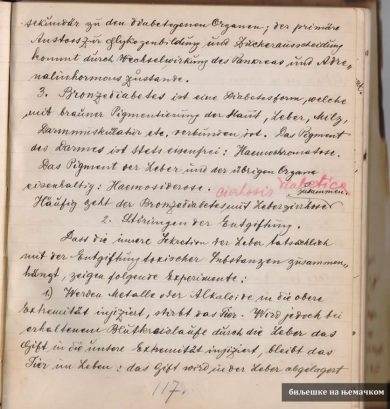 sekundär zu den diabetogenen Organen; der primäre
Anstoss zur Glykogenbildung und Zuckerausscheidung
kommt durch Wechselwirkung des Pankreas und Adre-
nalinhormons zustande.
3. Bronzediabetes ist eine Diabetesform, welche
mit brauner Pigmentierung der Haut, Leber, Milz,
Darmmuskulatur etc. verbunden ist. Das Pigment
des Darmes ist stets eisenfrei: Haemochromatose.
Das Pigment der Leber und der übrigen Organe
eisenhaltig: Haemosiderose.
zusammen.
Häufig geht der Bronzediabetes mit Leberzirrhose
2. Störungen der Entgiftung.
Dass die innere Sekretion der Leber tatsächlich
mit der Entgiftung toxischer Substanzen zusammen-
hängt, zeigen folgende Experimente:
1) Werden Metalle oder Alkaloide in die obere
Extremität injiziert, stirbt das Tier. Wird jedoch bei
erhaltenem Blutkreislaufe durch die Leber das
Gift in die untere Extremität injiziert, bleibt das
Tier im Leben: das Gift wird in der Leber abgelagert
117.
биљешке на њемачком